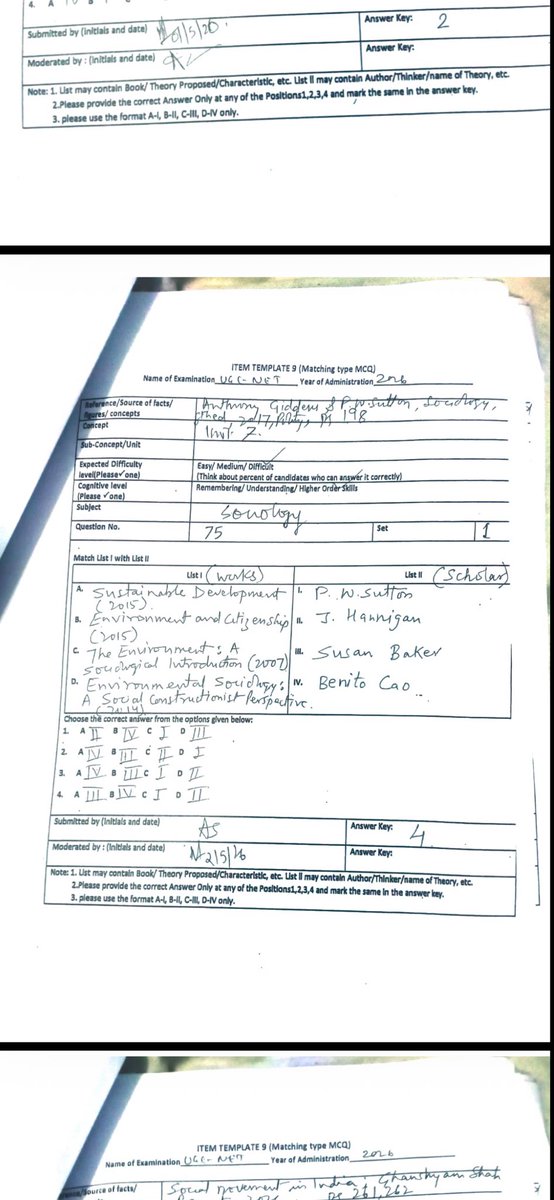 4. A
Submitted by (Initials and date) 1/5/26. Answer Key: 2
Moderated by : (Initials and date) Answer Key:
Note: 1. List may contain Book/ Theory Proposed/Characteristic, etc. List II may contain Author/Thinker/name of Theory, etc.
2.Please provide the correct Answer Only at any of the Positions1,2,3,4 and mark the same in the answer key.
3. please use the format A-I, B-II, C-III, D-IV only.
ITEM TEMPLATE 9 (Matching type MCQ)
Name of Examination UGC-NET Year of Administration 2026
Reference/Source of facts/ Anthony Giddens & P.W. Sutton, Sociology,
figures/ concepts 2017, Polity, 198
Concept Unit 7.
Sub-Concept/Unit
Expected Difficulty Easy/ Medium/ Difficult
level(Please✓one) (Think about percent of candidates who can answer it correctly)
Cognitive level Remembering/ Understanding/ Higher Order Skills
(Please ✓one)
Subject Sociology
Question No. 75 Set 1
Match List I with List II
List I (works) List II (Scholar)
A. Sustainable Development I. P. W. Sutton
(2015).
B. Environment and Citizenship II. J. Hannigan
(2015)
C. The Environment: A III. Susan Baker
sociological Introduction (2007)
D. Environmental Sociology: IV. Benito Cao
A Social Constructionist Perspective.
(2014)
Choose the correct answer from the options given below:
1. A II B IV C I D III
2. A IV B III C II D I
3. A IV B III C I D II
4. A III B IV C I D II
Submitted by (Initials and date) AS Answer Key: 4
Moderated by : (Initials and date) 2/5/26 Answer Key:
Note: 1. List may contain Book/ Theory Proposed/Characteristic, etc. List II may contain Author/Thinker/name of Theory, etc.
2.Please provide the correct Answer Only at any of the Positions1,2,3,4 and mark the same in the answer key.
3. please use the format A-I, B-II, C-III, D-IV only.
ITEM TEMPLATE 9 (Matching type MCQ)
Name of Examination UGC-NET Year of Administration 2026
/Source of facts/ Social movement in India, Ghanshyam Shah
261, 262